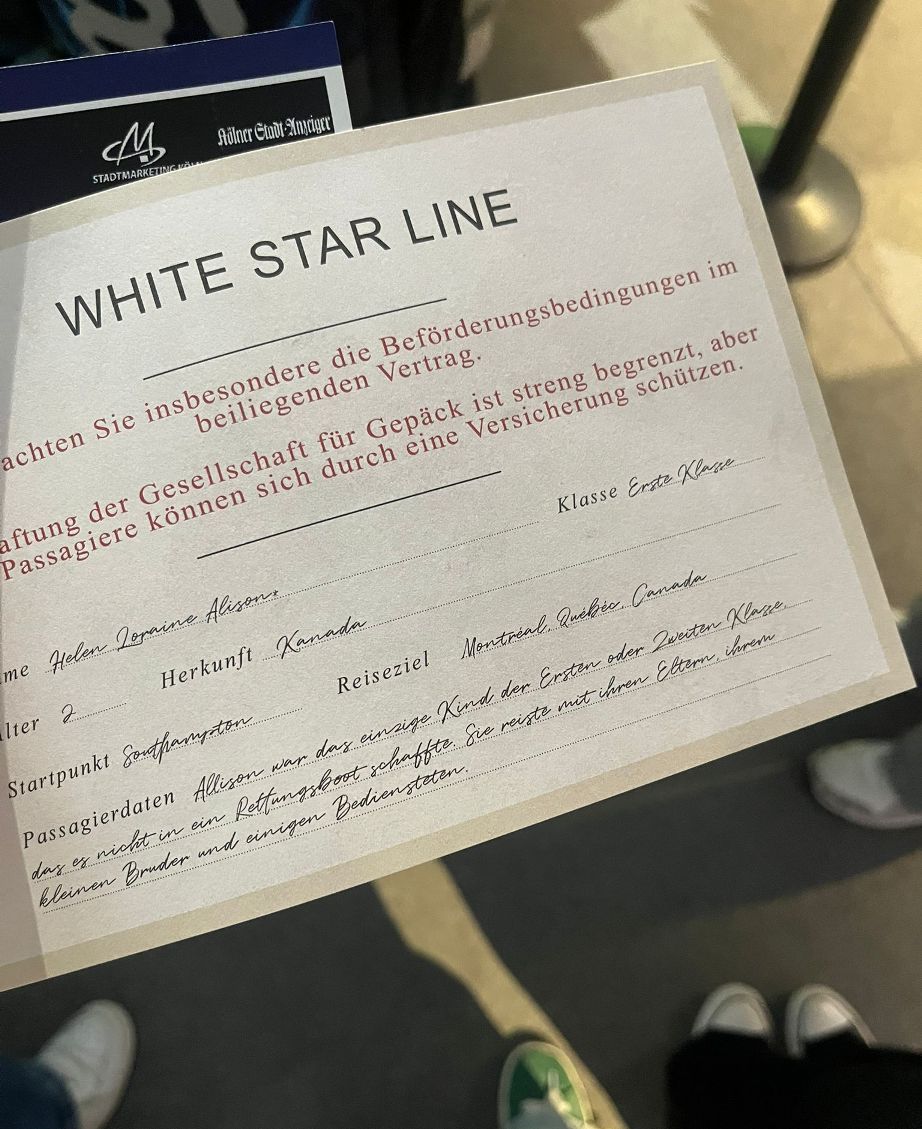 Kölner Stadt-Anzeiger
STADTMARKETING
WHITE STAR LINE
achten Sie insbesondere die Beförderungsbedingungen im
beiliegenden Vertrag.
aftung der Gesellschaft für Gepäck ist streng begrenzt, aber
Passagiere können sich durch eine Versicherung schützen.
Klasse Erste Klasse
me Helen Loraine Alison*
lter 2 Herkunft Kanada
Startpunkt Southampton Reiseziel Montréal, Québéc, Canada
Passagierdaten Allison war das einzige Kind der Ersten oder Zweiten Klasse,
das es nicht in ein Rettungsboot schaffte. Sie reiste mit ihren Eltern, ihrem
kleinen Bruder und einigen Bediensteten.